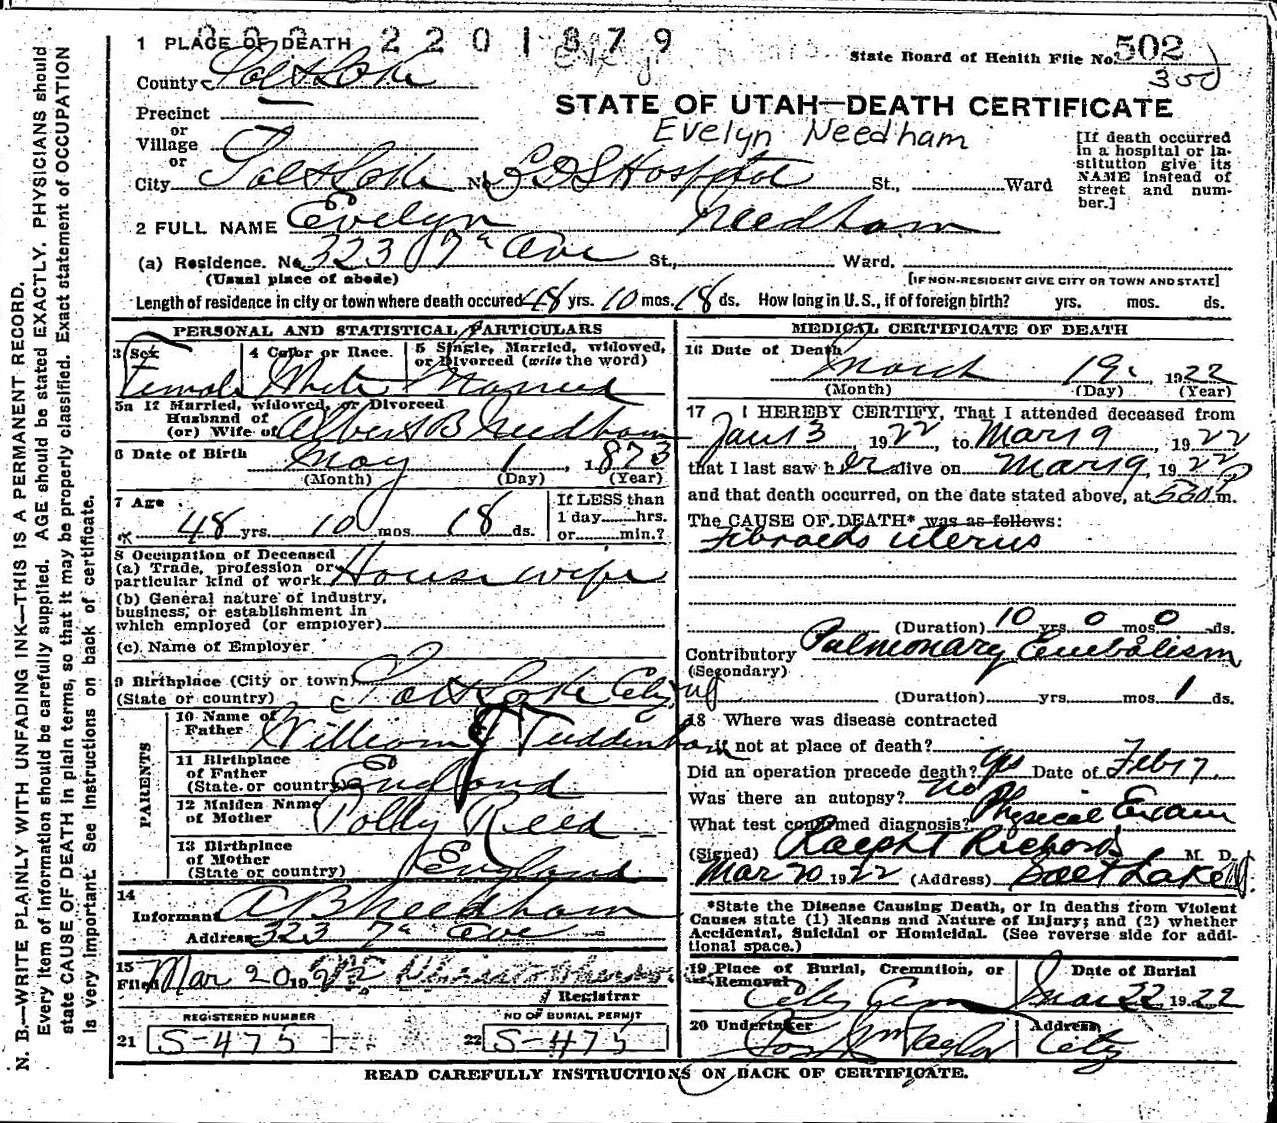 1 PLACE OF DEATH 2201879
State Board of Health File No. 502
300
County Salt Lake
STATE OF UTAH—DEATH CERTIFICATE
Evelyn Needham
Precinct
or
Village
or
City Salt Lake No. LDS Hospital St., Ward
[If death occurred in a hospital or institution give its NAME instead of street and number.]
2 FULL NAME Evelyn Needham
(a) Residence. No. 323 7th Ave St., Ward,
(Usual place of abode) [IF NON-RESIDENT GIVE CITY OR TOWN AND STATE]
Length of residence in city or town where death occured 48 yrs. 10 mos. 18 ds. How long in U.S., if of foreign birth? yrs. mos. ds.
PERSONAL AND STATISTICAL PARTICULARS
3 Sex 4 Color or Race. 5 Single, Married, widowed,
or Divorced (write the word)
Female White Married
5a If Married, widowed, or Divorced
Husband of
(or) Wife of Albert B Needham
6 Date of Birth May 1, 1873
(Month) (Day) (Year)
7 Age If LESS than
1 day hrs.
48 yrs. 10 mos. 18 ds. or min.?
8 Occupation of Deceased
(a) Trade, profession or
particular kind of work Housewife
(b) General nature of industry,
business, or establishment in
which employed (or employer)
(c) Name of Employer
9 Birthplace (City or town) Salt Lake City
(State or country)
PARENTS
10 Name of
Father William J Tuddenham
11 Birthplace
of Father
(State or country) England
12 Maiden Name
of Mother Polly Reed
13 Birthplace
of Mother
(State or country) England
14
Informant A B Needham
Address 323 7th Ave
15
Filed Mar 20 1922
Registrar
REGISTERED NUMBER NO OF BURIAL PERMIT
21 S-475 22 S-475
MEDICAL CERTIFICATE OF DEATH
16 Date of Death March 19, 1922
(Month) (Day) (Year)
17 I HEREBY CERTIFY, That I attended deceased from
Jan 13 1922 to Mar 19, 1922
that I last saw her alive on Mar 19, 1922
and that death occurred, on the date stated above, at 530P m.
The CAUSE OF DEATH* was as follows:
Fibroids uterus
(Duration) 10 yrs. 0 mos. 0 ds.
Contributory Pulmonary Embolism
(Secondary)
(Duration) yrs. mos. 1 ds.
18 Where was disease contracted
if not at place of death?
Did an operation precede death? yes Date of Feb 17
Was there an autopsy? no
What test confirmed diagnosis? Physical Exam
(Signed) Ralph T Richards M. D.
Mar 20 1922 (Address) Salt Lake
*State the Disease Causing Death, or in deaths from Violent
Causes state (1) Means and Nature of Injury; and (2) whether
Accidental, Suicidal or Homicidal. (See reverse side for additional space.)
19 Place of Burial, Cremation, or Date of Burial
Removal
City Cem Mar 22, 1922
20 Undertaker Address
Jos Wm Taylor City
READ CAREFULLY INSTRUCTIONS ON BACK OF CERTIFICATE.
N. B.—WRITE PLAINLY WITH UNFADING INK—THIS IS A PERMANENT RECORD.
Every item of information should be carefully supplied. AGE should be stated EXACTLY. PHYSICIANS should
state CAUSE OF DEATH in plain terms, so that it may be properly classified. Exact statement of OCCUPATION
is very important. See Instructions on back of certificate.